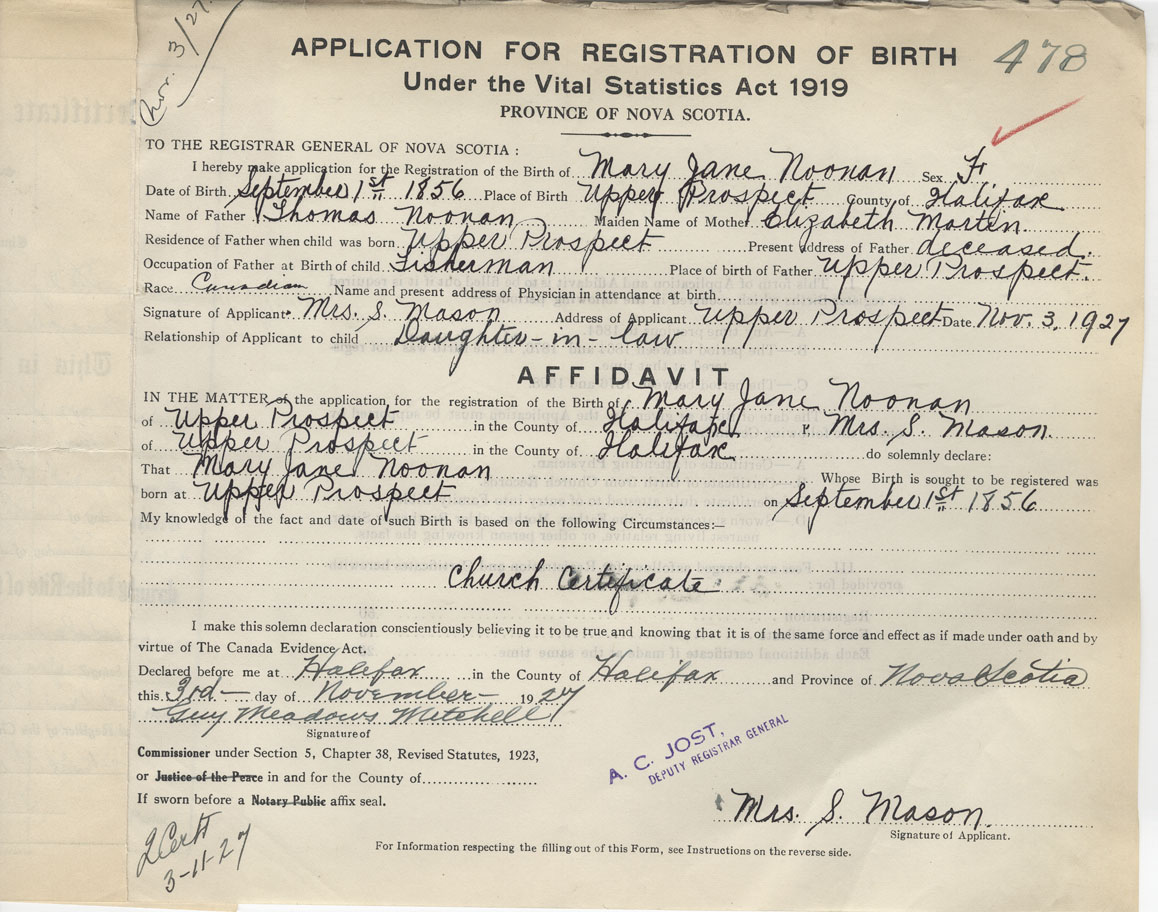 Nov. 3/27.
APPLICATION FOR REGISTRATION OF BIRTH 478
Under the Vital Statistics Act 1919
PROVINCE OF NOVA SCOTIA.
TO THE REGISTRAR GENERAL OF NOVA SCOTIA :
I hereby make application for the Registration of the Birth of Mary Jane Noonan Sex F
Date of Birth September 1st 1856 Place of Birth Upper Prospect County of Halifax
Name of Father Thomas Noonan Maiden Name of Mother Elizabeth Martin.
Residence of Father when child was born Upper Prospect Present address of Father deceased.
Occupation of Father at Birth of child Fisherman Place of birth of Father Upper Prospect.
Race Canadian Name and present address of Physician in attendance at birth
Signature of Applicant Mrs. S. Mason Address of Applicant Upper Prospect Date Nov. 3, 1927
Relationship of Applicant to child Daughter-in-law
AFFIDAVIT
IN THE MATTER of the application, for the registration of the Birth of Mary Jane Noonan
of Upper Prospect in the County of Halifax, Mrs. S. Mason.
of Upper Prospect in the County of Halifax do solemnly declare:
That Mary Jane Noonan Whose Birth is sought to be registered was
born at Upper Prospect on September 1st 1856
My knowledge of the fact and date of such Birth is based on the following Circumstances:—
Church Certificate
I make this solemn declaration conscientiously believing it to be true and knowing that it is of the same force and effect as if made under oath and by
virtue of The Canada Evidence Act.
Declared before me at Halifax in the County of Halifax and Province of Nova Scotia
this 3rd day of November 1927
Guy Meadows Mitchell
Signature of
Commissioner under Section 5, Chapter 38, Revised Statutes, 1923,
or Justice of the Peace in and for the County of
If sworn before a Notary Public affix seal.
A. C. JOST,
DEPUTY REGISTRAR GENERAL
Mrs. S. Mason.
Signature of Applicant.
2 Cert
3-11-27
For Information respecting the filling out of this Form, see Instructions on the reverse side.